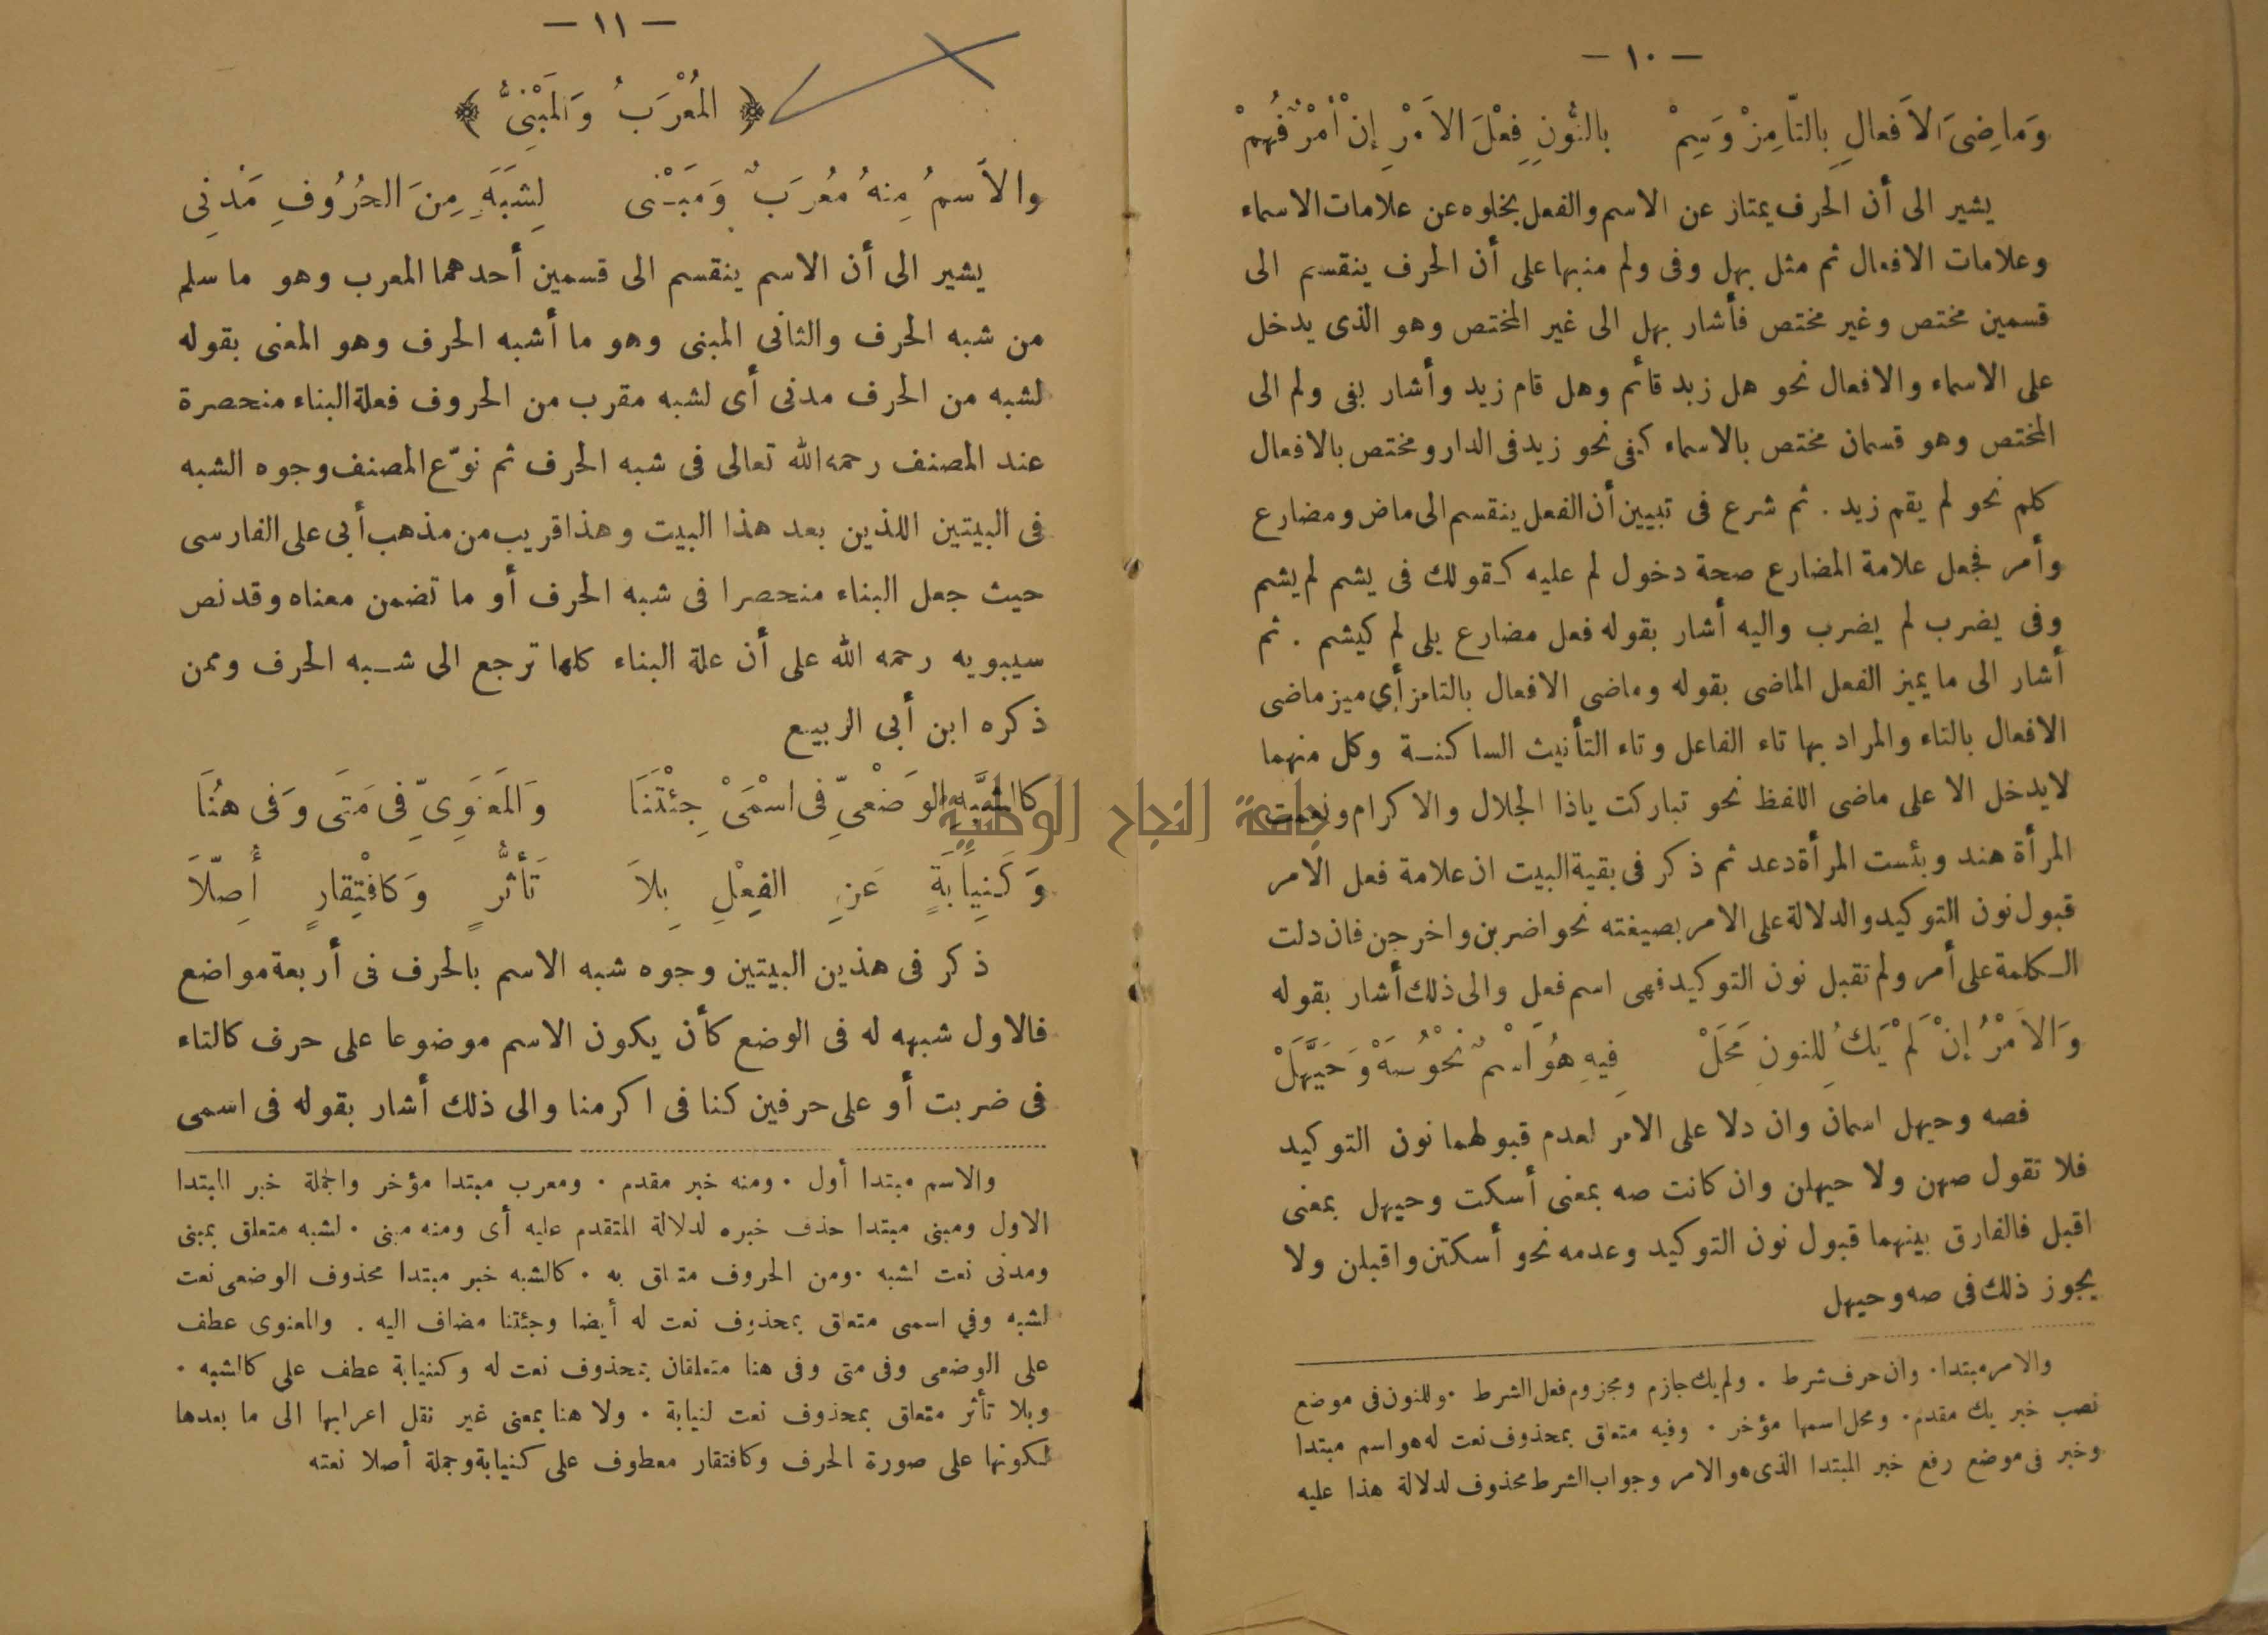 — ١٠ —
وَمَاضِىَ الاَفعالِ بِالتَّامِزْ وَسِمْ بالنُّونِ فِعْلَ الاَمْرِ إنْ أَمْرٌ فُهِمْ
يشير الى أن الحرف يمتاز عن الاسم والفعل بخلوه عن علامات الاسماء
وعلامات الافعال ثم مثل بهل وفى ولم منبها على أن الحرف ينقسم الى
قسمين مختص وغير مختص فأشار بهل الى غير المختص وهو الذى يدخل
على الاسماء والافعال نحو هل زيد قائم وهل قام زيد وأشار بفى ولم الى
المختص وهو قسمان مختص بالاسماء كفى نحو زيد فى الدار ومختص بالافعال
كلم نحو لم يقم زيد . ثم شرع فى تبيين أن الفعل ينقسم الى ماض ومضارع
وأمر فجعل علامة المضارع صحة دخول لم عليه كقولك فى يشم لم يشم
وفى يضرب لم يضرب واليه أشار بقوله فعل مضارع يلى لم كيشم . ثم
أشار الى ما يميز الفعل الماضى بقوله وماضى الافعال بالتامز أى ميز ماضى
الافعال بالتاء والمراد بها تاء الفاعل وتاء التأنيث الساكنة وكل منهما
لايدخل الا على ماضى اللفظ نحو تباركت ياذا الجلال والاكرام ونعمت
المرأة هند وبئست المرأة دعد ثم ذكر فى بقية البيت ان علامة فعل الامر
قبول نون التوكيد والدلالة على الامر بصيغته نحو اضربن واخرجن فان دلت
الكلمة على أمر ولم تقبل نون التوكيد فهى اسم فعل والى ذلك أشار بقوله
وَالاَمْرُ إنْ لَمْ يَكُ لِلنونِ مَحَلْ فِيهِ هُوَ اسْمٌ نَحْوُ صَهْ وَحَيَّهَلْ
فصه وحيهل اسمان وان دلا على الامر لعدم قبولهما نون التوكيد
فلا تقول صهن ولا حيهلن وان كانت صه بمعنى أسكت وحيهل بمعنى
اقبل فالفارق بينهما قبول نون التوكيد وعدمه نحو أسكتن واقبلن ولا
يجوز ذلك فى صه وحيهل
والامر مبتدا · وان حرف شرط . ولم يك جازم ومجزوم فعل الشرط · وللنون فى موضع
نصب خبر يك مقدم · ومحل اسمها مؤخر · وفيه متعلق بمحذوف نعت له هو اسم مبتدا
وخبر فى موضع رفع خبر المبتدا الذى هو الامر وجواب الشرط محذوف لدلالة هذا عليه
— ١١ —
﴿ المُعْرَبُ وَالمَبْنِىُّ ﴾
والاَسمُ مِنهُ مُعْرَبٌ وَمَبْنِى لِشَبَهٍ مِنَ الحُرُوفِ مُدْنِى
يشير الى أن الاسم ينقسم الى قسمين أحدهما المعرب وهو ما سلم
من شبه الحرف والثانى المبنى وهو ما أشبه الحرف وهو المعنى بقوله
لشبه من الحرف مدنى أى لشبه مقرب من الحروف فعلة البناء منحصرة
عند المصنف رحمه الله تعالى فى شبه الحرف ثم نوّع المصنف وجوه الشبه
فى البيتين اللذين بعد هذا البيت وهذا قريب من مذهب أبى على الفارسى
حيث جعل البناء منحصرا فى شبه الحرف أو ما تضمن معناه وقد نص
سيبويه رحمه الله على أن علة البناء كلها ترجع الى شبه الحرف وممن
ذكره ابن أبى الربيع
كالشَّبَهِ الوَضْعِىِّ فِى اسْمَىْ جِئْتَنَا وَالمَعْنَوِىِّ فِى مَتَى وَفى هُنَا
وَكَنِيَابَةٍ عَنِ الفِعْلِ بِلاَ تَأَثُّرٍ وَكافْتِقارٍ أُصِّلاَ
ذكر فى هذين البيتين وجوه شبه الاسم بالحرف فى أربعة مواضع
فالاول شبهه له فى الوضع كأن يكون الاسم موضوعا على حرف كالتاء
فى ضربت أو على حرفين كنا فى اكرمنا والى ذلك أشار بقوله فى اسمى
والاسم مبتدا أول · ومنه خبر مقدم · ومعرب مبتدا مؤخر والجملة خبر المبتدا
الاول ومبنى مبتدا حذف خبره لدلالة المتقدم عليه أى ومنه مبنى · لشبه متعلق بمبنى
ومدنى نعت لشبه · ومن الحروف متعلق به · كالشبه خبر مبتدا محذوف الوضعى نعت
لشبه وفي اسمى متعلق بمحذوف نعت له أيضا وجئتنا مضاف اليه . والمعنوى عطف
على الوضعى وفى متى وفى هنا متعلقان بمحذوف نعت له وكنيابة عطف على كالشبه ·
وبلا تأثر متعلق بمحذوف نعت لنيابة · ولا هنا بمعنى غير نقل اعرابها الى ما بعدها
لكونها على صورة الحرف وكافتقار معطوف على كنيابة وجملة أصلا نعته
جامعة النجاح الوطنية